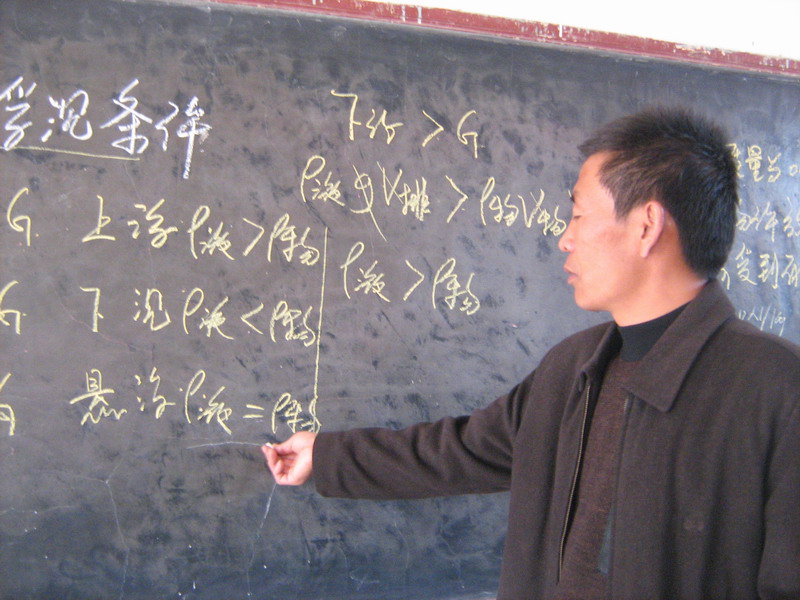 浮沉条件
G 上浮 ρ液>ρ物
G 下沉 ρ液<ρ物
悬浮 ρ液=ρ物
F浮>G
ρ液gV排>ρ物V物
ρ液>ρ物
质量为
受到